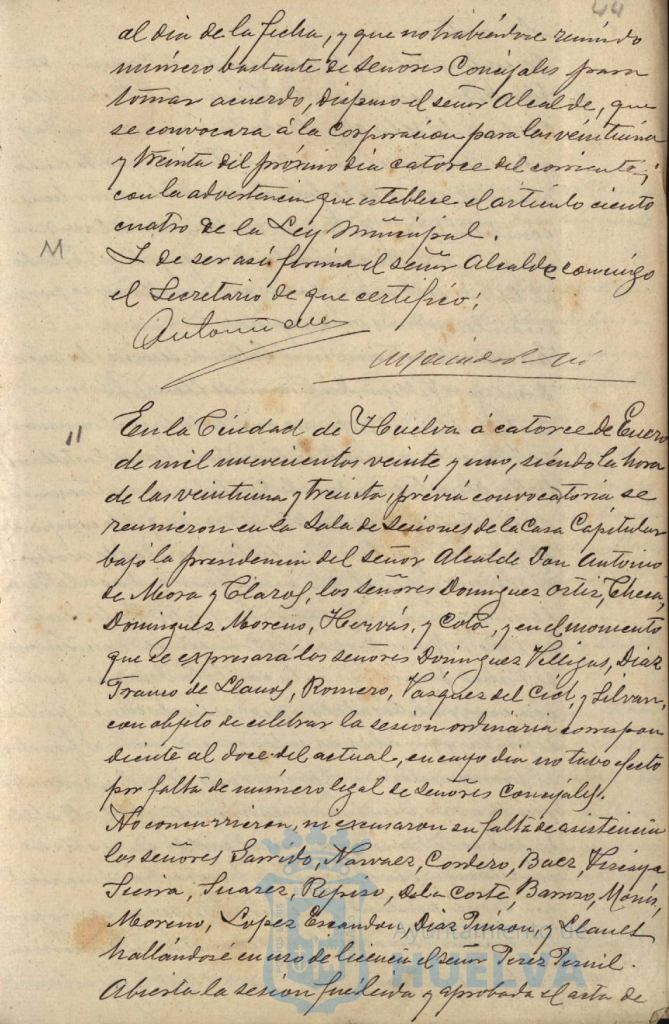 44
al dia de la fecha, y que no habiéndose reunido
número bastante de señores Concejales para
tomar acuerdo, dispuso el señor Alcalde, que
se convocara á la Corporación para las veintiuna
y treinta del próximo dia catorce del corriente,
con la advertencia que establece el artículo ciento
cuatro de la Ley Municipal.
M
Y de ser así firma el señor Alcalde conmigo
el Secretario de que certifico:
Antonio de
11
En la Ciudad de Huelva á catorce de Enero
de mil novecientos veinte y uno, siéndo la hora
de las veintiuna y treinta, prévia convocatoria se
reunieron en la Sala de Sesiones de la Casa Capitular
bajo la presidencia del señor Alcalde Don Antonio
de Mora y Claros, los señores Dominguez Ortiz, Checa,
Dominguez Moreno, Hervás, y Coto, y en el momento
que se expresará los señores Dominguez Villegas, Diaz
Franco de Llanos, Romero, Vázquez del Cid, y Silvan,
con objeto de celebrar la sesion ordinaria correspon
diente al doce del actual, en cuyo dia no tubo efecto
por falta de número legal de señores Concejales.
No concurrieron, ni excusaron su falta de asistencia
los señores Garrido, Narvaez, Cordero, Baez, Vizcaya
Suarez, Repiso, de la Corte, Barrozo, Monís,
Moreno, Lopez Escandon, Diaz Pinson, y Llanes
hallándose en uso de licencia el señor Perez
Abierta la sesión fué leida y aprobada el acta de
Ayuntamiento de
HUELVA